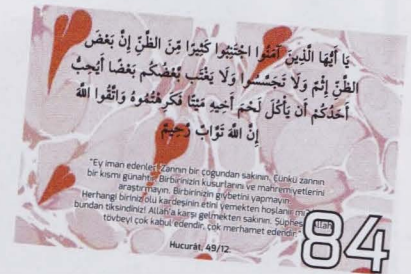 يَا أَيُّهَا الَّذِينَ آمَنُوا اجْتَنِبُوا كَثِيرًا مِّنَ الظَّنِّ إِنَّ بَعْضَ
الظَّنِّ إِثْمٌ وَلَا تَجَسَّسُوا وَلَا يَغْتَب بَّعْضُكُم بَعْضًا أَيُحِبُّ
أَحَدُكُمْ أَن يَأْكُلَ لَحْمَ أَخِيهِ مَيْتًا فَكَرِهْتُمُوهُ وَاتَّقُوا اللَّهَ
إِنَّ اللَّهَ تَوَّابٌ رَّحِيمٌ
"Ey iman edenler! Zannın bir çoğundan sakının. Çünkü zannın
bir kısmı günahtır. Birbirinizin kusurlarını ve mahremiyetlerini
araştırmayın. Birbirinizin gıybetini yapmayın.
Herhangi biriniz ölü kardeşinin etini yemekten hoşlanır mı
bundan tiksindiniz! Allah'a karşı gelmekten sakının. Şüphes Allah
tövbeyi çok kabul edendir, çok merhamet edendir."
Hucurât, 49/12
84